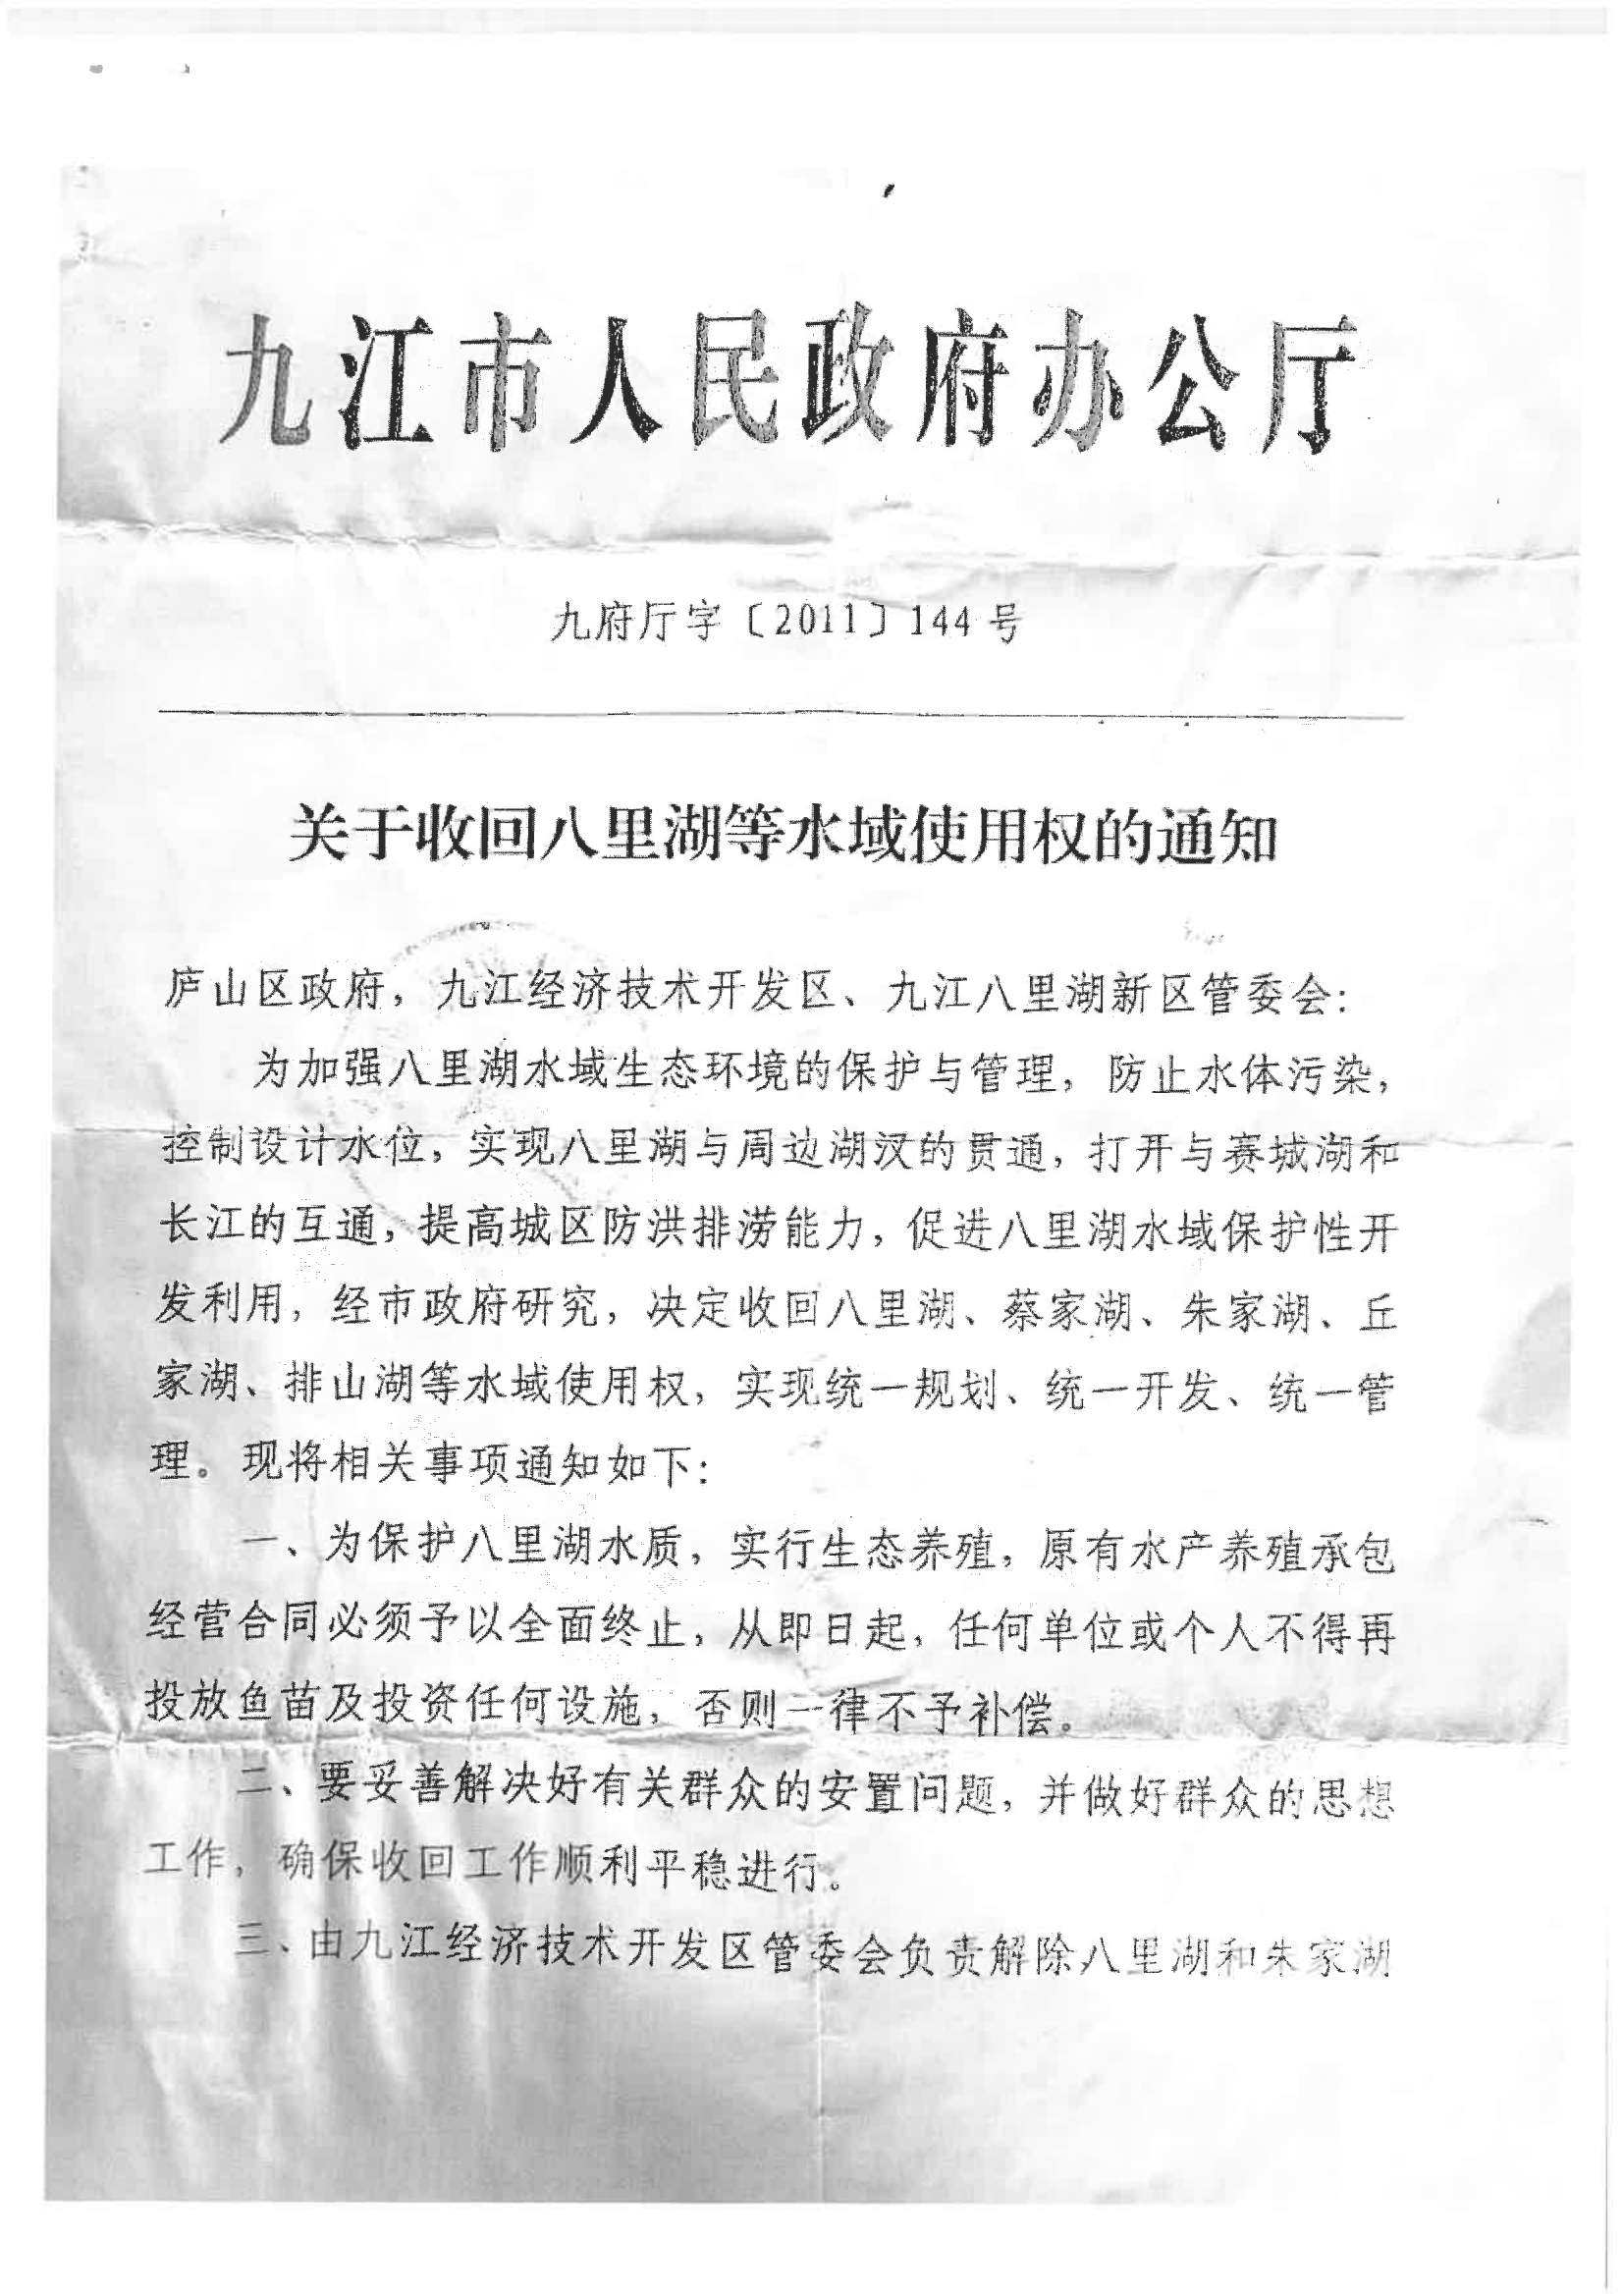 九江市人民政府办公厅
九府厅字〔2011〕144号
关于收回八里湖等水域使用权的通知
庐山区政府，九江经济技术开发区、九江八里湖新区管委会：
为加强八里湖水域生态环境的保护与管理，防止水体污染，
控制设计水位，实现八里湖与周边湖汊的贯通，打开与赛城湖和
长江的互通，提高城区防洪排涝能力，促进八里湖水域保护性开
发利用，经市政府研究，决定收回八里湖、蔡家湖、朱家湖、丘
家湖、排山湖等水域使用权，实现统一规划、统一开发、统一管
理。现将相关事项通知如下：
一、为保护八里湖水质，实行生态养殖，原有水产养殖承包
经营合同必须予以全面终止，从即日起，任何单位或个人不得再
投放鱼苗及投资任何设施，否则一律不予补偿。
二、要妥善解决好有关群众的安置问题，并做好群众的思想
工作，确保收回工作顺利平稳进行。
三、由九江经济技术开发区管委会负责解除八里湖和朱家湖